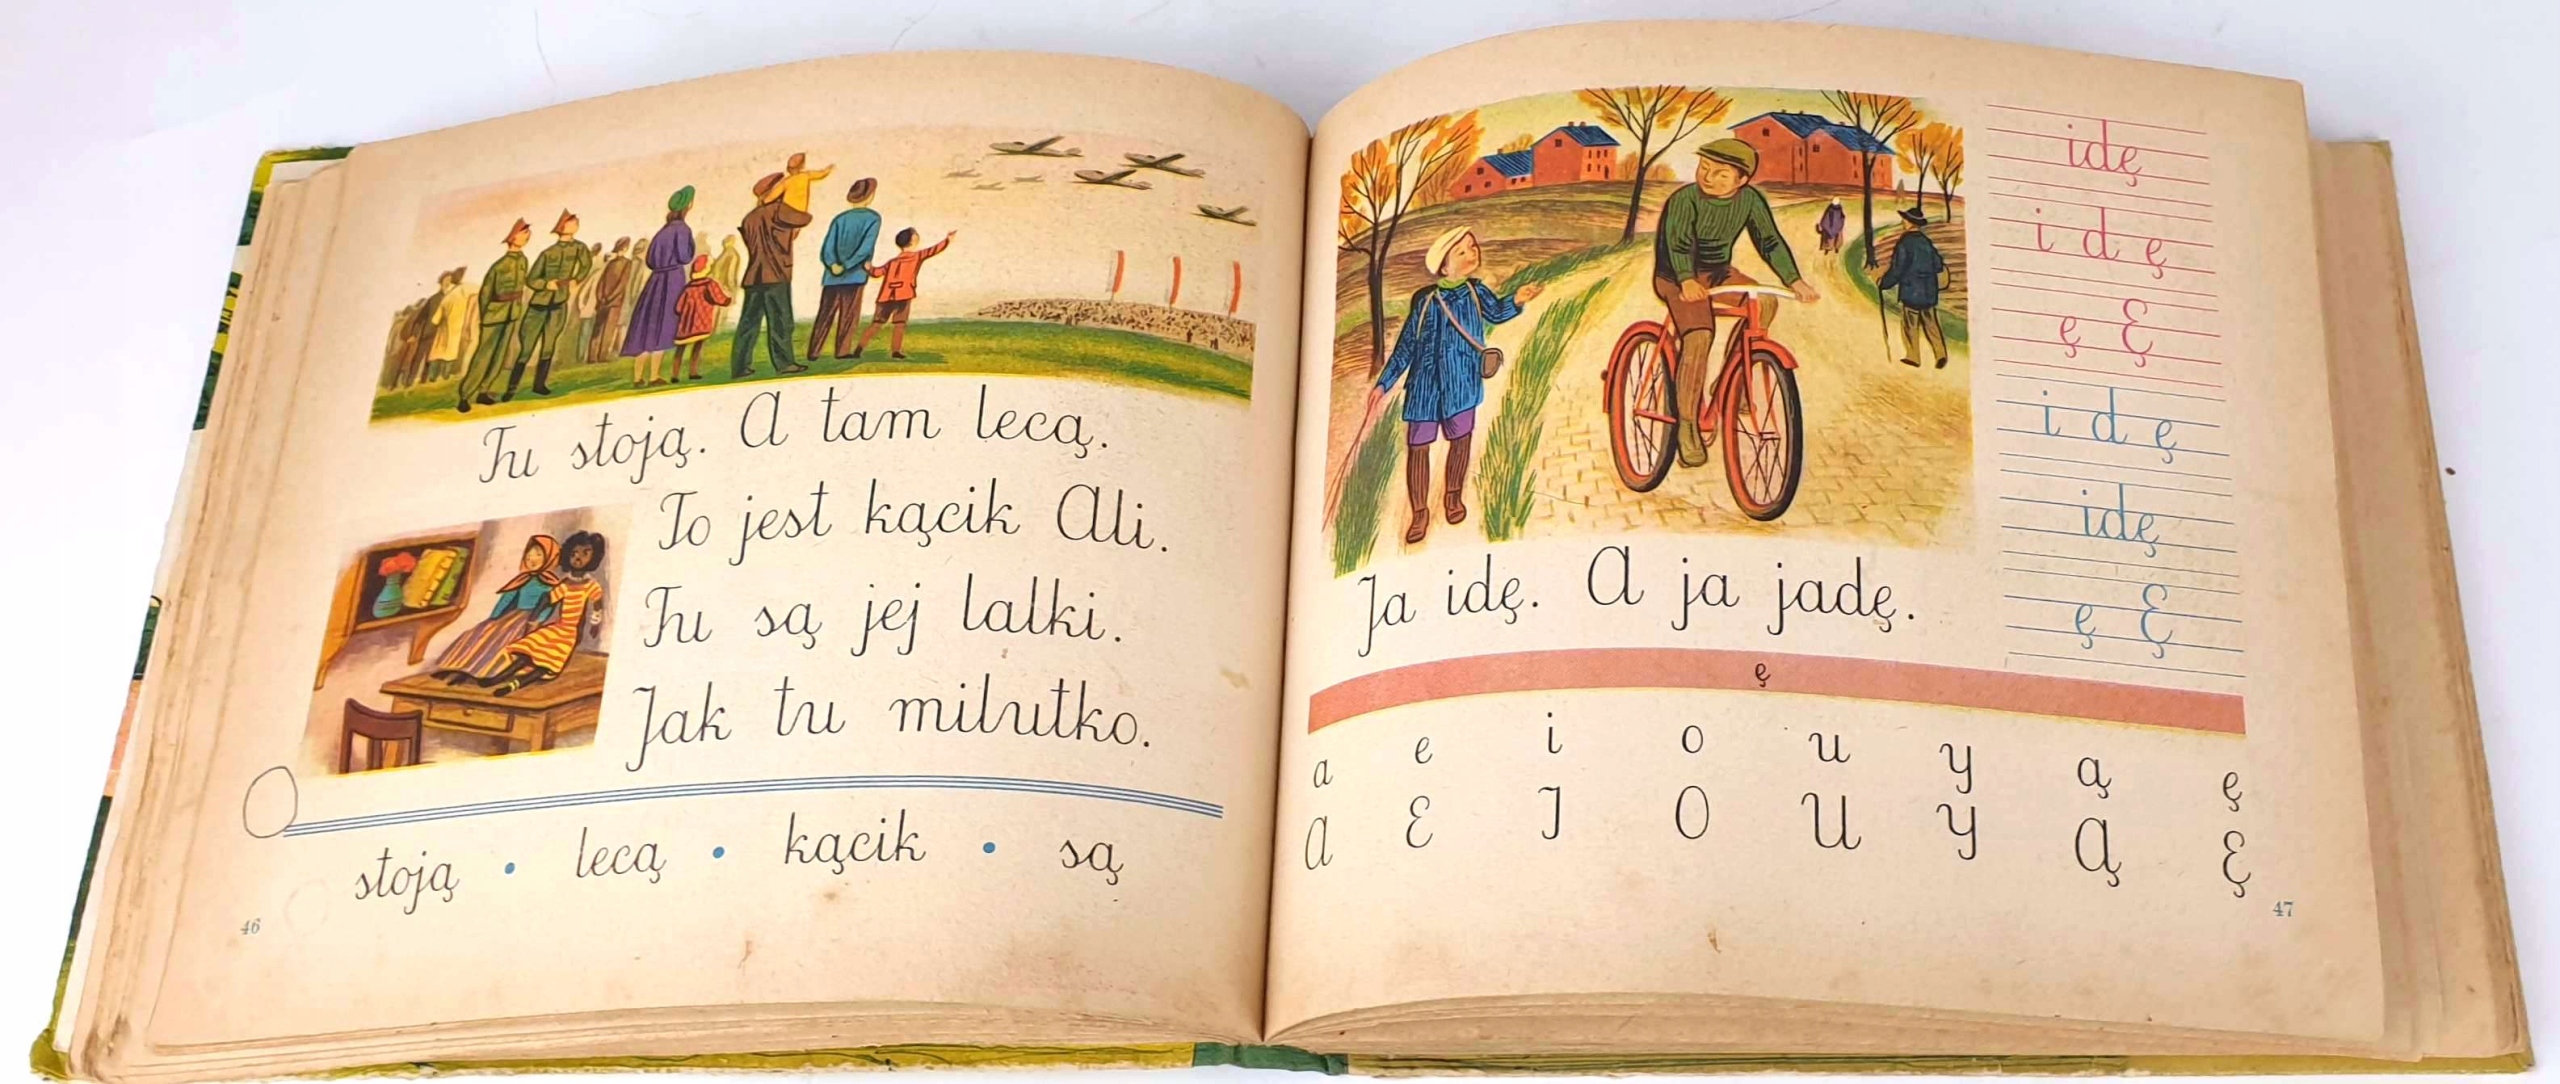 Tu stoją. A tam lecą.
To jest kącik Ali.
Tu są jej lalki.
Jak tu milutko.
stoją • lecą • kącik • są
46
idę
i d ę
ę Ę
i d ę
idę
ę Ę
Ja idę. A ja jadę.
ę
a e i o u y ą ę
A E I O U Y Ą Ę
47